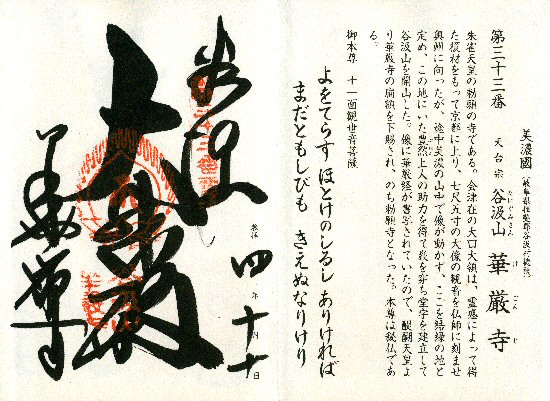 第三十三番
美濃國
天台宗 谷汲山 華厳寺
たにぐみさん けごんじ
朱雀天皇の勅願の寺である。会津在の大口大領は、霊感によって得
た榎材をもって京都に上り、七尺五寸の大像の観音を仏師に刻ませ
奥州に向ったが、途中美濃の山中で像が動かず、ここを結縁の地と
定め、この地にいた豊然上人の助力を得て巌を穿ち堂宇を建立して
谷汲山を開山した。像に華厳経が書写されていたので、醍醐天皇よ
り華厳寺の扁額を下賜され、のち勅願寺となった。本尊は秘仏であ
る。
御本尊 十一面観世音菩薩
よをてらす ほとけのしるし ありければ
まだともしびも きえぬなりけり
奉拝
四年十月十日
大悲殿
華厳寺